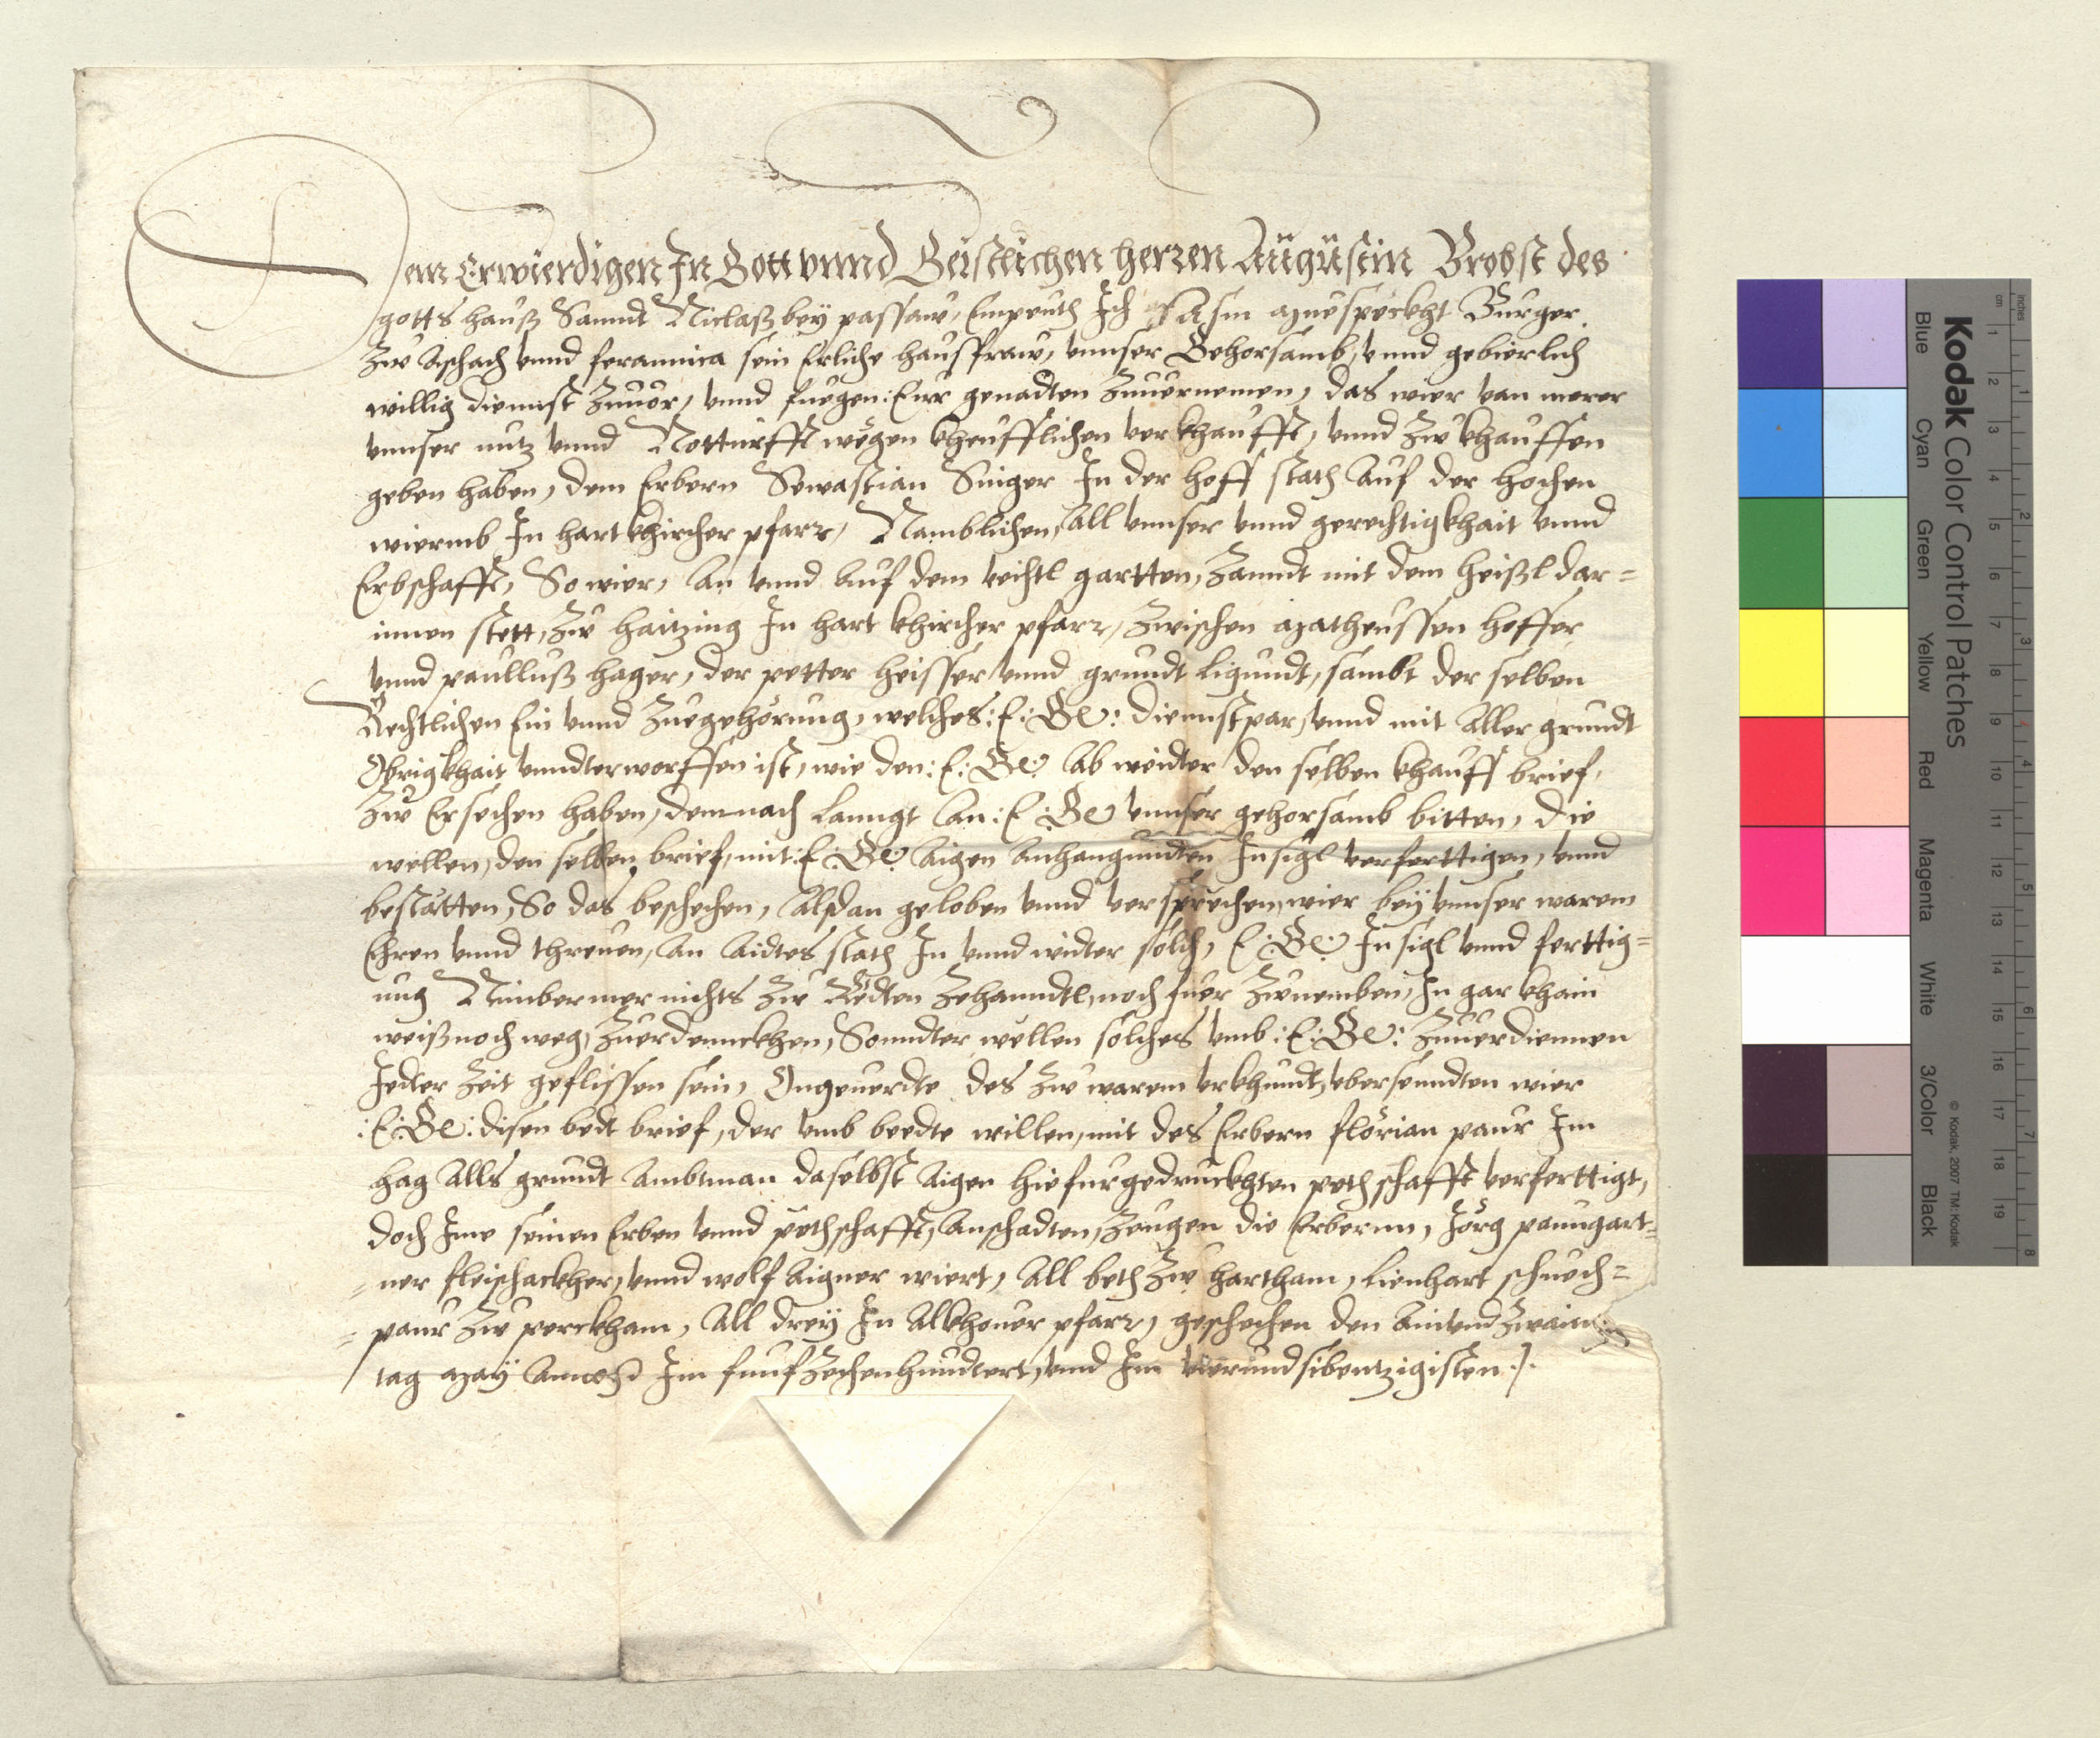 Dem Erwierdigen In Gott vnnd Geistlichen herren Augustin Brobst des
gotts hauß Sannd Niclaß beÿ passaw, Empeuth Ich Muespeckht Burger
Zw Aschach vnnd feronnica sein Erliche hausfraw, vnnser Gehorsamb, vnnd gebierlich
willig diennst Zuuor, vnnd fuegen: Eur genadten Zuuernemen, das wier von merer
vnnser nutz vnnd Notturfft wegen kheufflichen verkhaufft, vnnd Zw khauffen
geben haben, dem Erbern Sewastian Singer In der hoff stath Auf der hochen
wiermb In hartkhircher pfarr, Namblichen, All vnnser vnnd gerechtigkhait vnnd
Erbschafft, So wier, An vnnd Auf dem gartten, Sanndt mit dem heißl dar=
innen stett, Zw haitzing In hart khircher pfarr, Zwischen Matheussen heffer
vnnd paulluß hager, der petter heisser vnnd grundt Ligundt, sambt der selben
Rechtlichen Ein vnnd Zuegehörung, welches: E: Ge: diennstpar, vnnd mit Aller grundt
Obrigkhait vnndterworffen ist, wie den: E: Ge: Ab weidter den selben khauff brief,
Zw Ersechen haben, demnach Lanngt An: E: Ge vnnser gehorsamb bitten, die
wellen, den selben brief, mit: E: Ge: Aigen Anhangundten Insigl verferttigen, vnnd
bestätten, So das beschechen, Alßdan geloben vnnd versprechen, wier beÿ vnnser warem
Ehren vnnd threuen, An Aidtes stath In vnnd widter solch, E: Ge: Insigl vnnd ferttig=
ung Nimbermer nichts Zw Redten Zehanndtl, noch fuer Zwnemben, In gar khain
weiß noch weg, Zuerdennckhen, Sonndter wellen solches vmb: E: Ge: Zuuerdiennen
Jedter Zeit geflissen sein, Ongeuerdte des Zw warem vrkhundt, vbersenndten wier
: E: Ge: disen bedt brief, der vmb beedte willen, mit des Erbern florian paur Im
hag Alls grundt Ambtman daselbst Aigen hiefurgedruckhten pethschafft verferttigt,
doch Ime seinen Erben vnnd pethschafft, Anschadten, Zeugen die Erbernn, Jörg paungart=
=ner fleischackher, vnnd wolf Aigner wiert, All beth Zw hartham, Lienhart schuech=
=paur Zw perckham, All dreÿ In Alkhouer pfarr, geschechen den Ainvnd
tag Maÿ Im funfzechenhundtert, vnd Im vierundsibentzigisten.

Kodak Color Control Patches
© Kodak, 2007 TM: Kodak
Blue Cyan Green Yellow Red Magenta White 3/Color Black
cm 1 2 3 4 5 6 7 8 9 10 11 12 13 14 15 16 17 18 19
inches 1 2 3 4 5 6 7 8